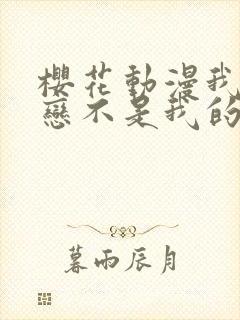 櫻花動漫我
戀不是我的
暮雨辰月